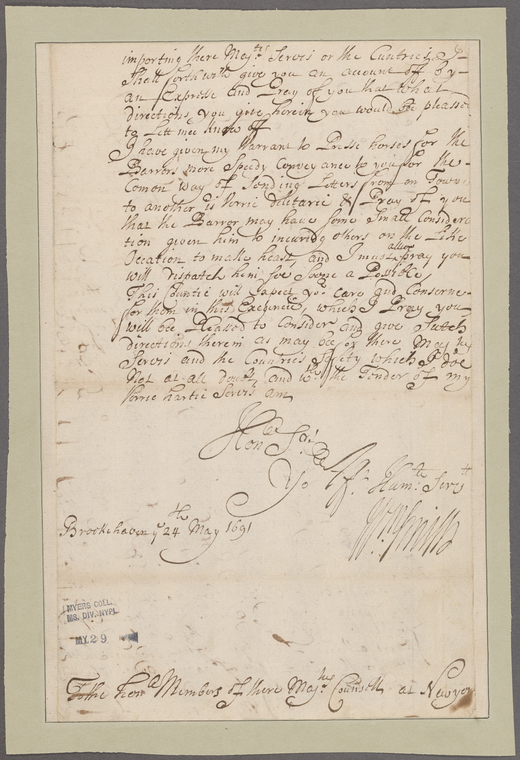 importing there Maj.ties Servis or the Cuntries, I
Shall forthwith give you an account off by
an Express and Pray of you that what
directions you give herein you would be pleased
to Lett mee know off
I have given my Warrant to Presse horses for the
Barrors more Speedy Conveyance to you for the
Comon Way of Sending Leters from on Towne
to another is Verrie dilitarie & Pray of you
that the Barror may have some Small Considera
tion given him to incuridg others on the Like
Ocation to make heast, and I must allso pray you
will dispatch him soe Soone a Possible,
This Countie will Expect yor. care and Conserne
for them in this Exegence, which I Pray you
will bee Pleased to Consider and give Sutch
directions therein as may bee for there Maj.ties
Servis and the Countries Safety which I doe
Not at all doubt, and wth. the Tender of my
Verrie hartie Servis am
Honble Srs
Yor Hum.le Servt
Wm. Smith
Brookhaven ye 24th May 1691
MYERS COLL.
MS. DIV. NYPL
29
To the Honble Members of there Maj.ties Counsell at Newyor